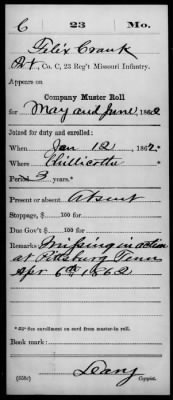 C 23 Mo.
Felix Crank
Pvt, Co. C, 23 Reg't Missouri Infantry.
Appears on
Company Muster Roll
for May and June, 1862
Joined for duty and enrolled:
When Jan 12, 1862.*
Where Chillicothe
Period 3 years.*
Present or absent Absent
Stoppage, $ 100 for
Due Gov't $ 100 for
Remarks: Missing in action
at Pittsburg Tenn
Apr 6th 1862
*See enrollment on card from muster-in roll.
Book mark:
(358c) Copyist.